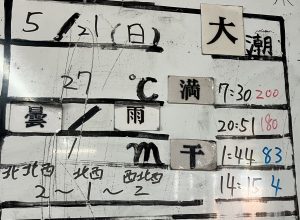 5/21(日) 大潮
27℃ 満 7:30 200
曇/雨 20:51 180
1m 干 1:44 83
北北西 北西 西北西 14:15 4
2~1~2